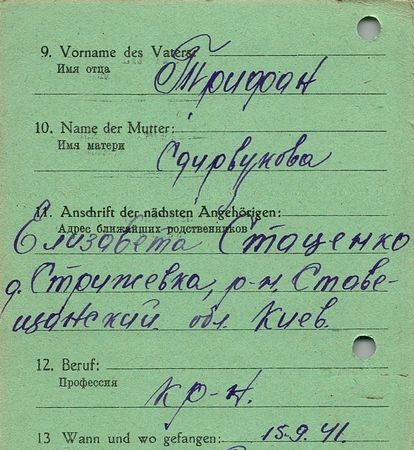 9. Vorname des Vaters:
Имя отца
Трифан
10. Name der Mutter:
Имя матери
11. Anschrift der nächsten Angehörigen:
Адрес ближайших родственников
Елизавета Стаценко
д. Стрижевка, р-н. Ставе-
щанский обл. Киев.
12. Beruf:
Профессия
кр-н.
13 Wann und wo gefangen: 15.9.41.